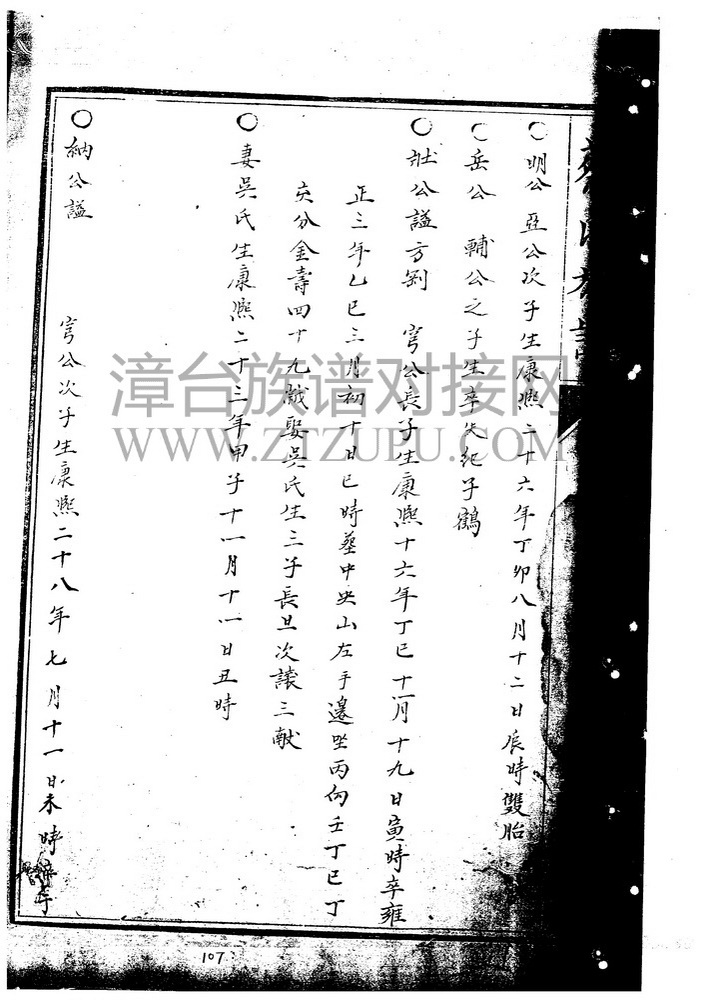 ○明公 亞公次子生康熙二十六年丁卯八月十二日辰時雙胎
○岳公 輔公之子生卒失紀子鶴
○壯公謚方剛 穹公長子生康熙十六年丁巳十一月十九日寅時卒雍
正三年乙巳三月初十日巳時墓中央山左手邊坐丙向壬丁巳丁
亥分金壽四十九歲娶吳氏生三子長旦次讓三献
○妻吳氏生康熙二十三年甲子十一月十一日丑時
○納公謚 穹公次子生康熙二十八年七月十一日未時
漳台族谱对接网
WWW.ZTZUPU.COM
107